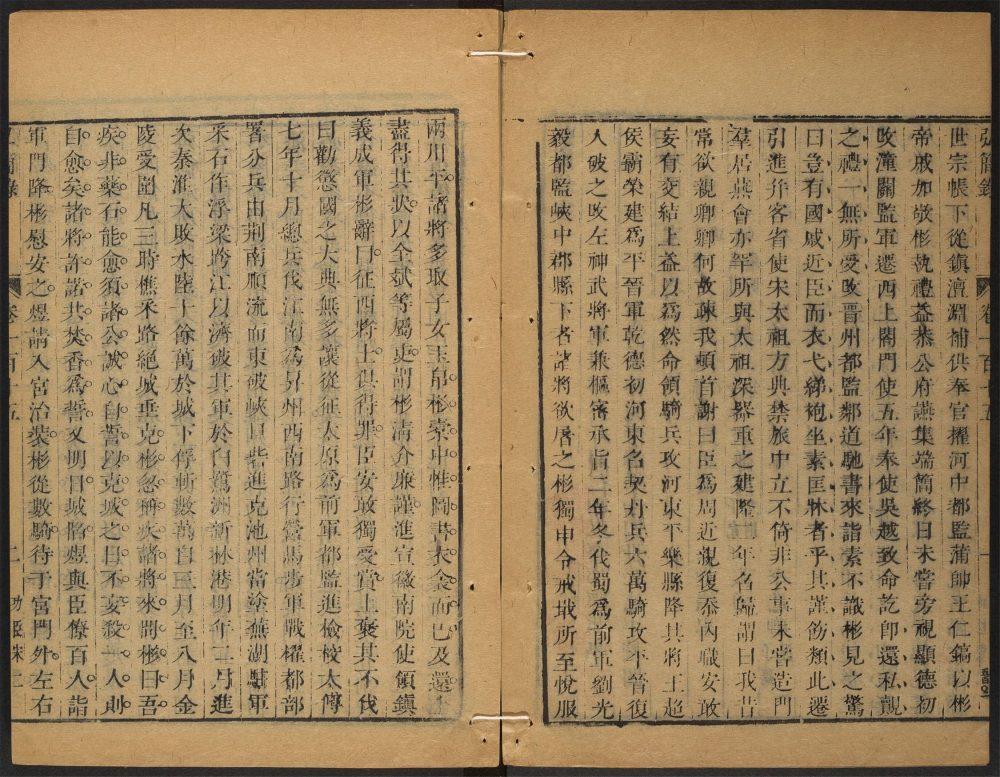 弘簡錄 卷一百十五 一
世宗帳下從鎮澶淵補供奉官擢河中都監蒲帥王仁鎬以彬
帝戚加敬彬執禮益恭公府讌集端簡終日未嘗旁視顯德初
改潼關監軍遷西上閤門使五年奉使吳越致命訖卽還私覿
之禮一無所受改晉州都監鄰道馳書來詣素不識彬見之驚
曰豈有國戚近臣而衣弋綈袍坐素匡牀者乎其謹飭類此遷
引進幷客省使宋太祖方典禁旅中立不倚非公事未嘗造門
羣居燕會亦罕所與太祖深器重之建隆 年召歸謂曰我昔
常欲親卿卿何故疎我頓首謝曰臣爲周近親復忝內職安敢
妄有交結上益以爲然命領騎兵攻河東平樂縣降其將王超
侯霸榮建爲平晉軍乾德初河東名契丹兵六萬騎攻平晉復
人破之改左神武將軍兼樞密承旨二年冬伐蜀爲前軍劉光
毅都監峽中郡縣下者諸將欲屠之彬獨申令戒戢所至悅服
兩川平諸將多取子女玉帛彬橐中惟圖書衣衾而已及還
盡得其狀以全斌等屬吏謂彬清介廉謹進宣徽南院使領鎮
義成軍彬辭曰征西將士俱得罪臣安敢獨受賞上褒其不伐
曰勸懲國之大典無多讓從征太原爲前軍都監進檢校太傅
七年十月總兵伐江南爲昇州西南路行營馬步軍戰櫂都部
署分兵由荆南順流而東破峽口砦進克池州當塗蕪湖駐軍
采石作浮梁跨江以濟破其軍於白鷺洲新林港明年二月進
次秦淮大敗水陸十餘萬於城下俘斬數萬自三月至八月金
陵受圍凡三時樵采路絕城垂克彬忽稱疾諸將來問彬曰吾
疾非藥石能愈須諸公誠心自誓以克城之日不妄殺一人則
自愈矣諸將許諾共焚香爲誓又明日城陷煜與臣僚百人詣
軍門降彬慰安之煜請入宮治裝彬從數騎待于宮門外左右
弘簡錄 卷一百十五 二